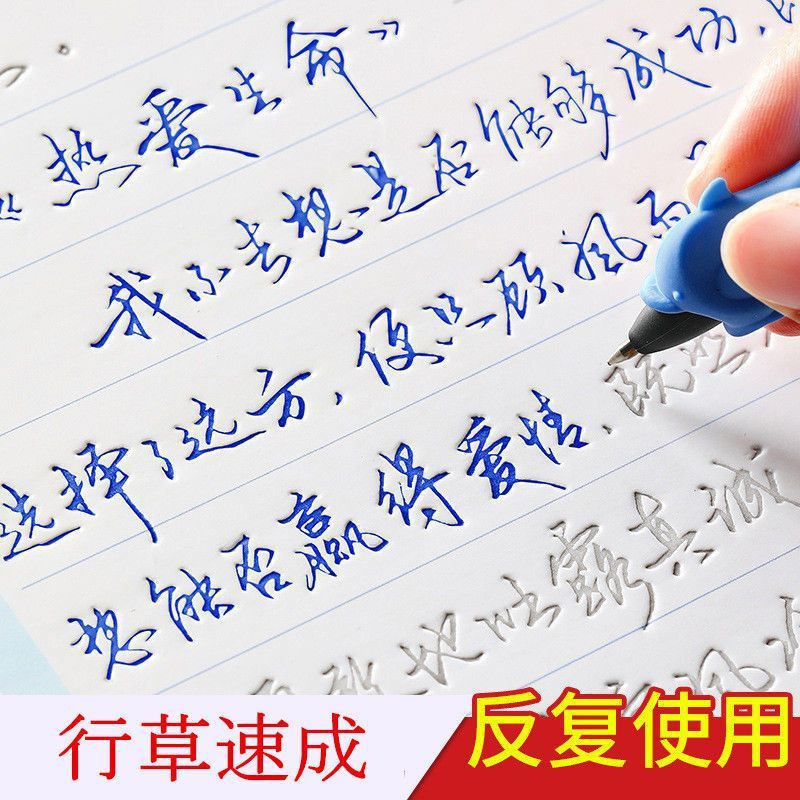 《热爱生命》
我不去想是否能够成功,
选择了远方,便只顾风雨
想能否赢得爱情.既然
地吐露真诚
行草速成
反复使用